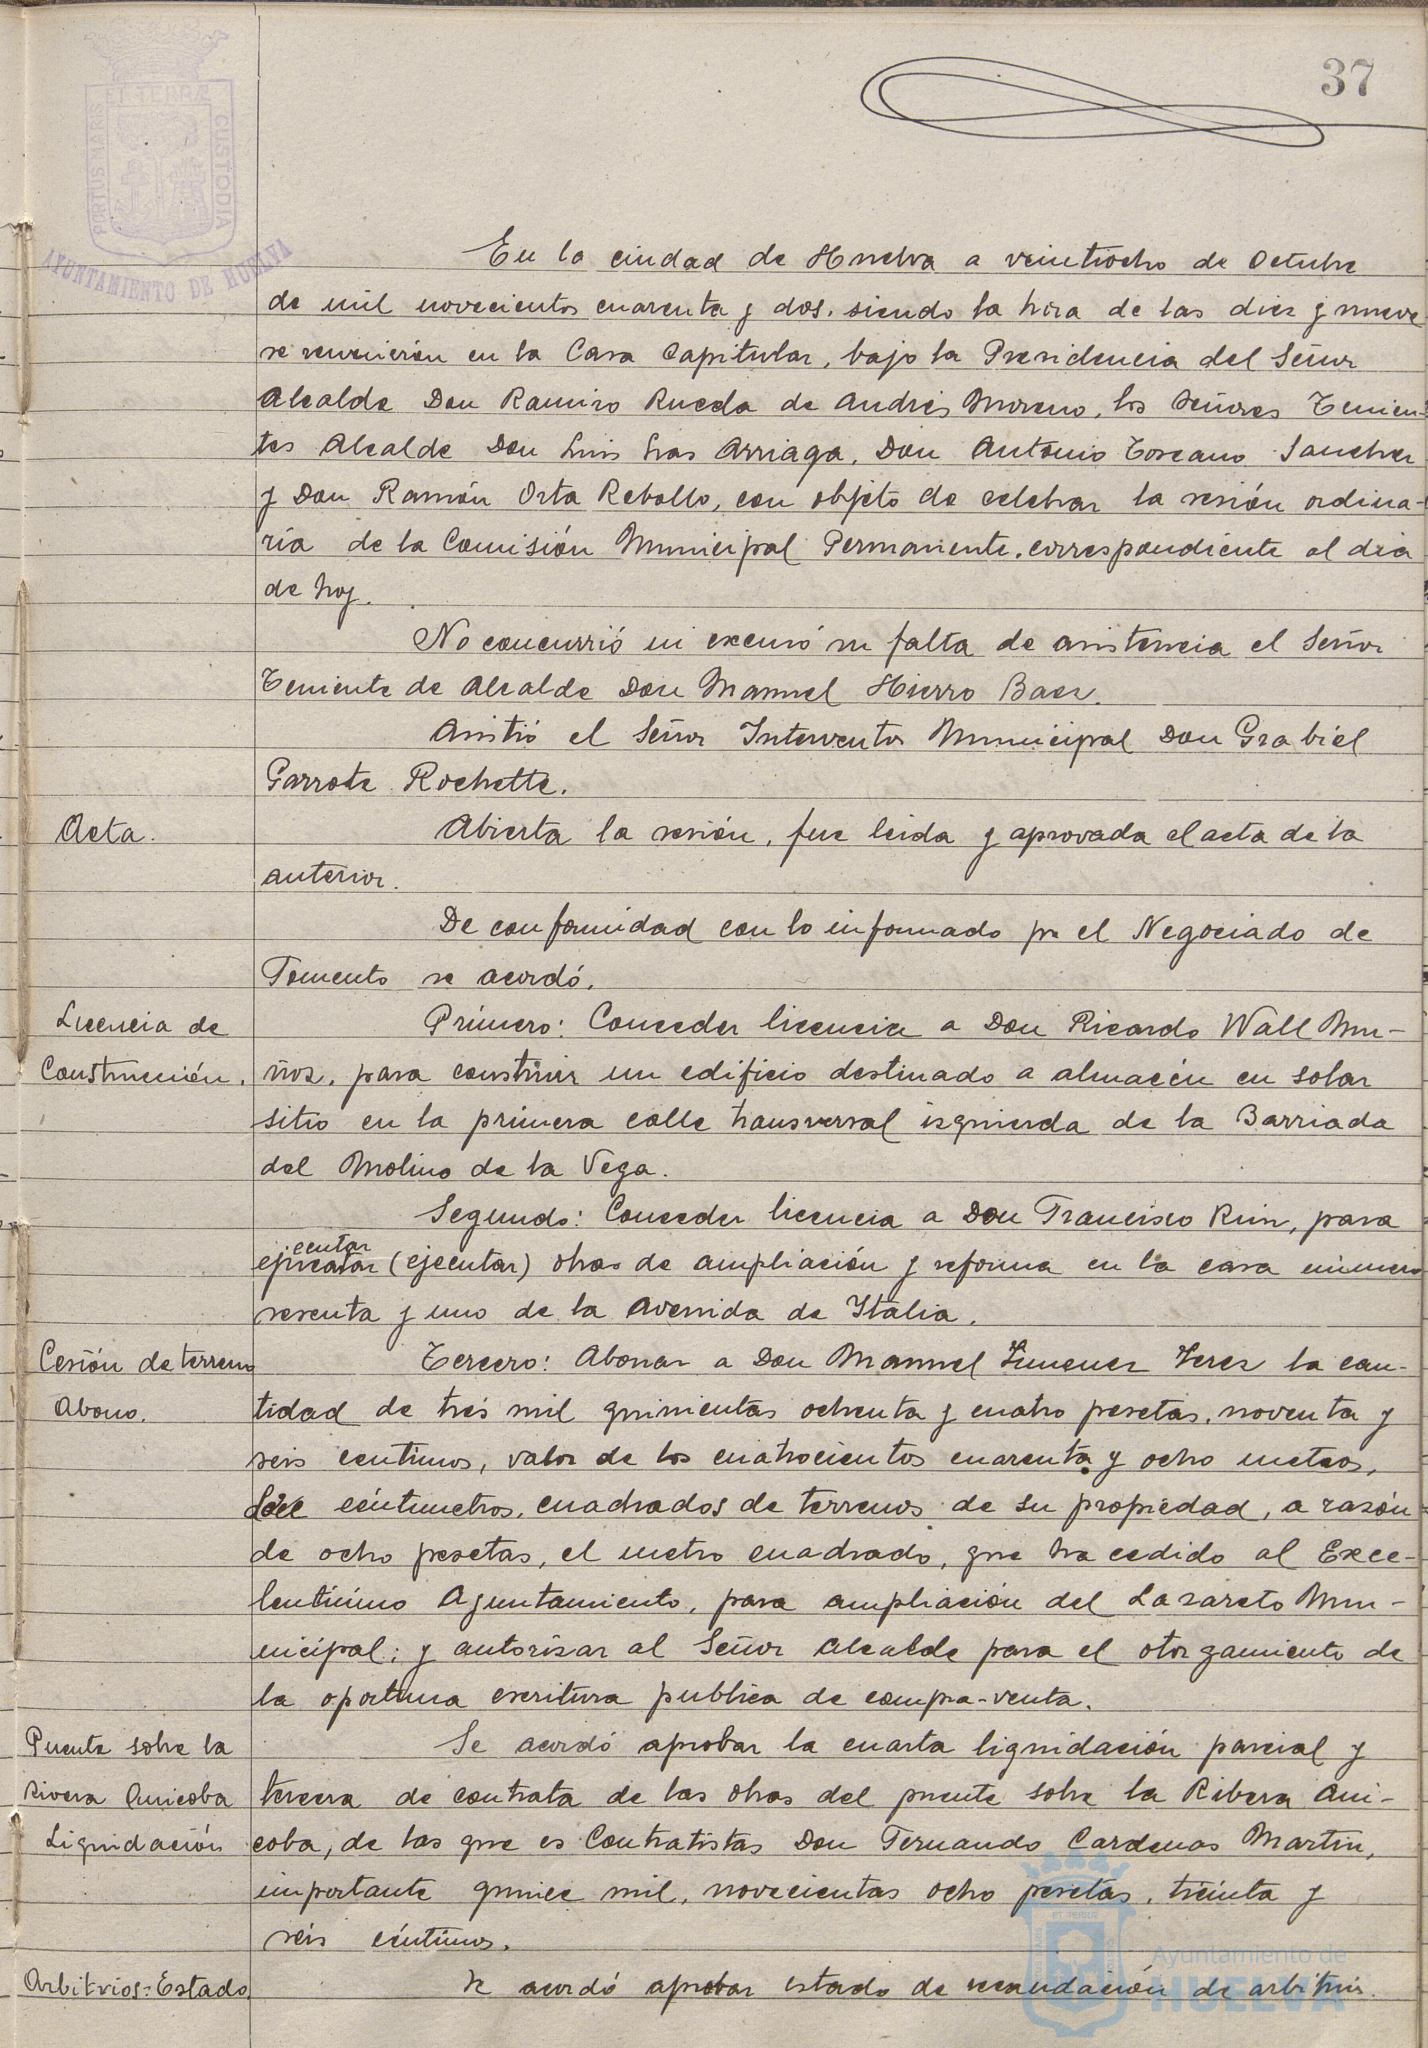 37
PORTUS MARIS ET TERRÆ CUSTODIA
AYUNTAMIENTO DE HUELVA
En la ciudad de Huelva a veintiocho de Octubre
de mil novecientos cuarenta y dos, siendo la hora de las diez y nueve
se reunieron en la Casa Capitular, bajo la Presidencia del Señor
Alcalde Don Ramiro Rueda de Andrés Moreno, los Señores Tenien-
tes Alcalde Don Luis Gras Arriaga, Don Antonio Toscano Sanchez
y Don Ramón Orta Rebollo, con objeto de celebrar la sesión ordina-
ria de la Comisión Municipal Permanente, correspondiente al dia
de hoy.
No concurrió ni excusó su falta de asistencia el Señor
Teniente de Alcalde Don Manuel Hierro Baez.
Asistió el Señor Interventor Municipal Don Grabiel
Garrote Rochette.
Acta.
Abierta la sesión, fue leida y aprovada el acta de la
anterior.
De conformidad con lo informado por el Negociado de
Fomento se acordó.
Licencia de
Construcción.
Primero: Conceder licencia a Don Ricardo Wall Mu-
ñoz, para construir un edificio destinado a almacén en solar
sitio en la primera calle transversal izquierda de la Barriada
del Molino de la Vega.
Segundo: Conceder licencia a Don Francisco Ruiz, para
ecutar
(ejecutar) obras de ampliación y reforma en la casa número
sesenta y uno de la Avenida de Italia.
Cesión de terreno
Abono.
Tercero: Abonar a Don Manuel Jimenez Jerez la can-
tidad de tres mil quinientas ochenta y cuatro pesetas, noventa y
seis centimos, valor de los cuatrocientos cuarenta y ocho metros,
doce céntimetros, cuadrados de terrenos de su propiedad, a razón
de ocho pesetas, el metro cuadrado, que ha cedido al Exce-
lentísimo Ayuntamiento, para ampliación del Lazareto Mu-
nicipal; y autorizar al Señor Alcalde para el otorgamiento de
la oportuna escritura publica de compra-venta.
Puente sobre la
rivera Anicoba
Liquidación
Se acordó aprobar la cuarta liquidación parcial y
tercera de contrata de las obras del puente sobre la Ribera Ani-
coba, de las que es Contratistas Don Fernando Cardenas Martín,
importante quince mil, novecientas ocho pesetas, treinta y
seis céntimos.
Arbitrios=Estado
Se acordó aprobar estado de recaudación de arbitrios.
Ayuntamiento de
HUELVA